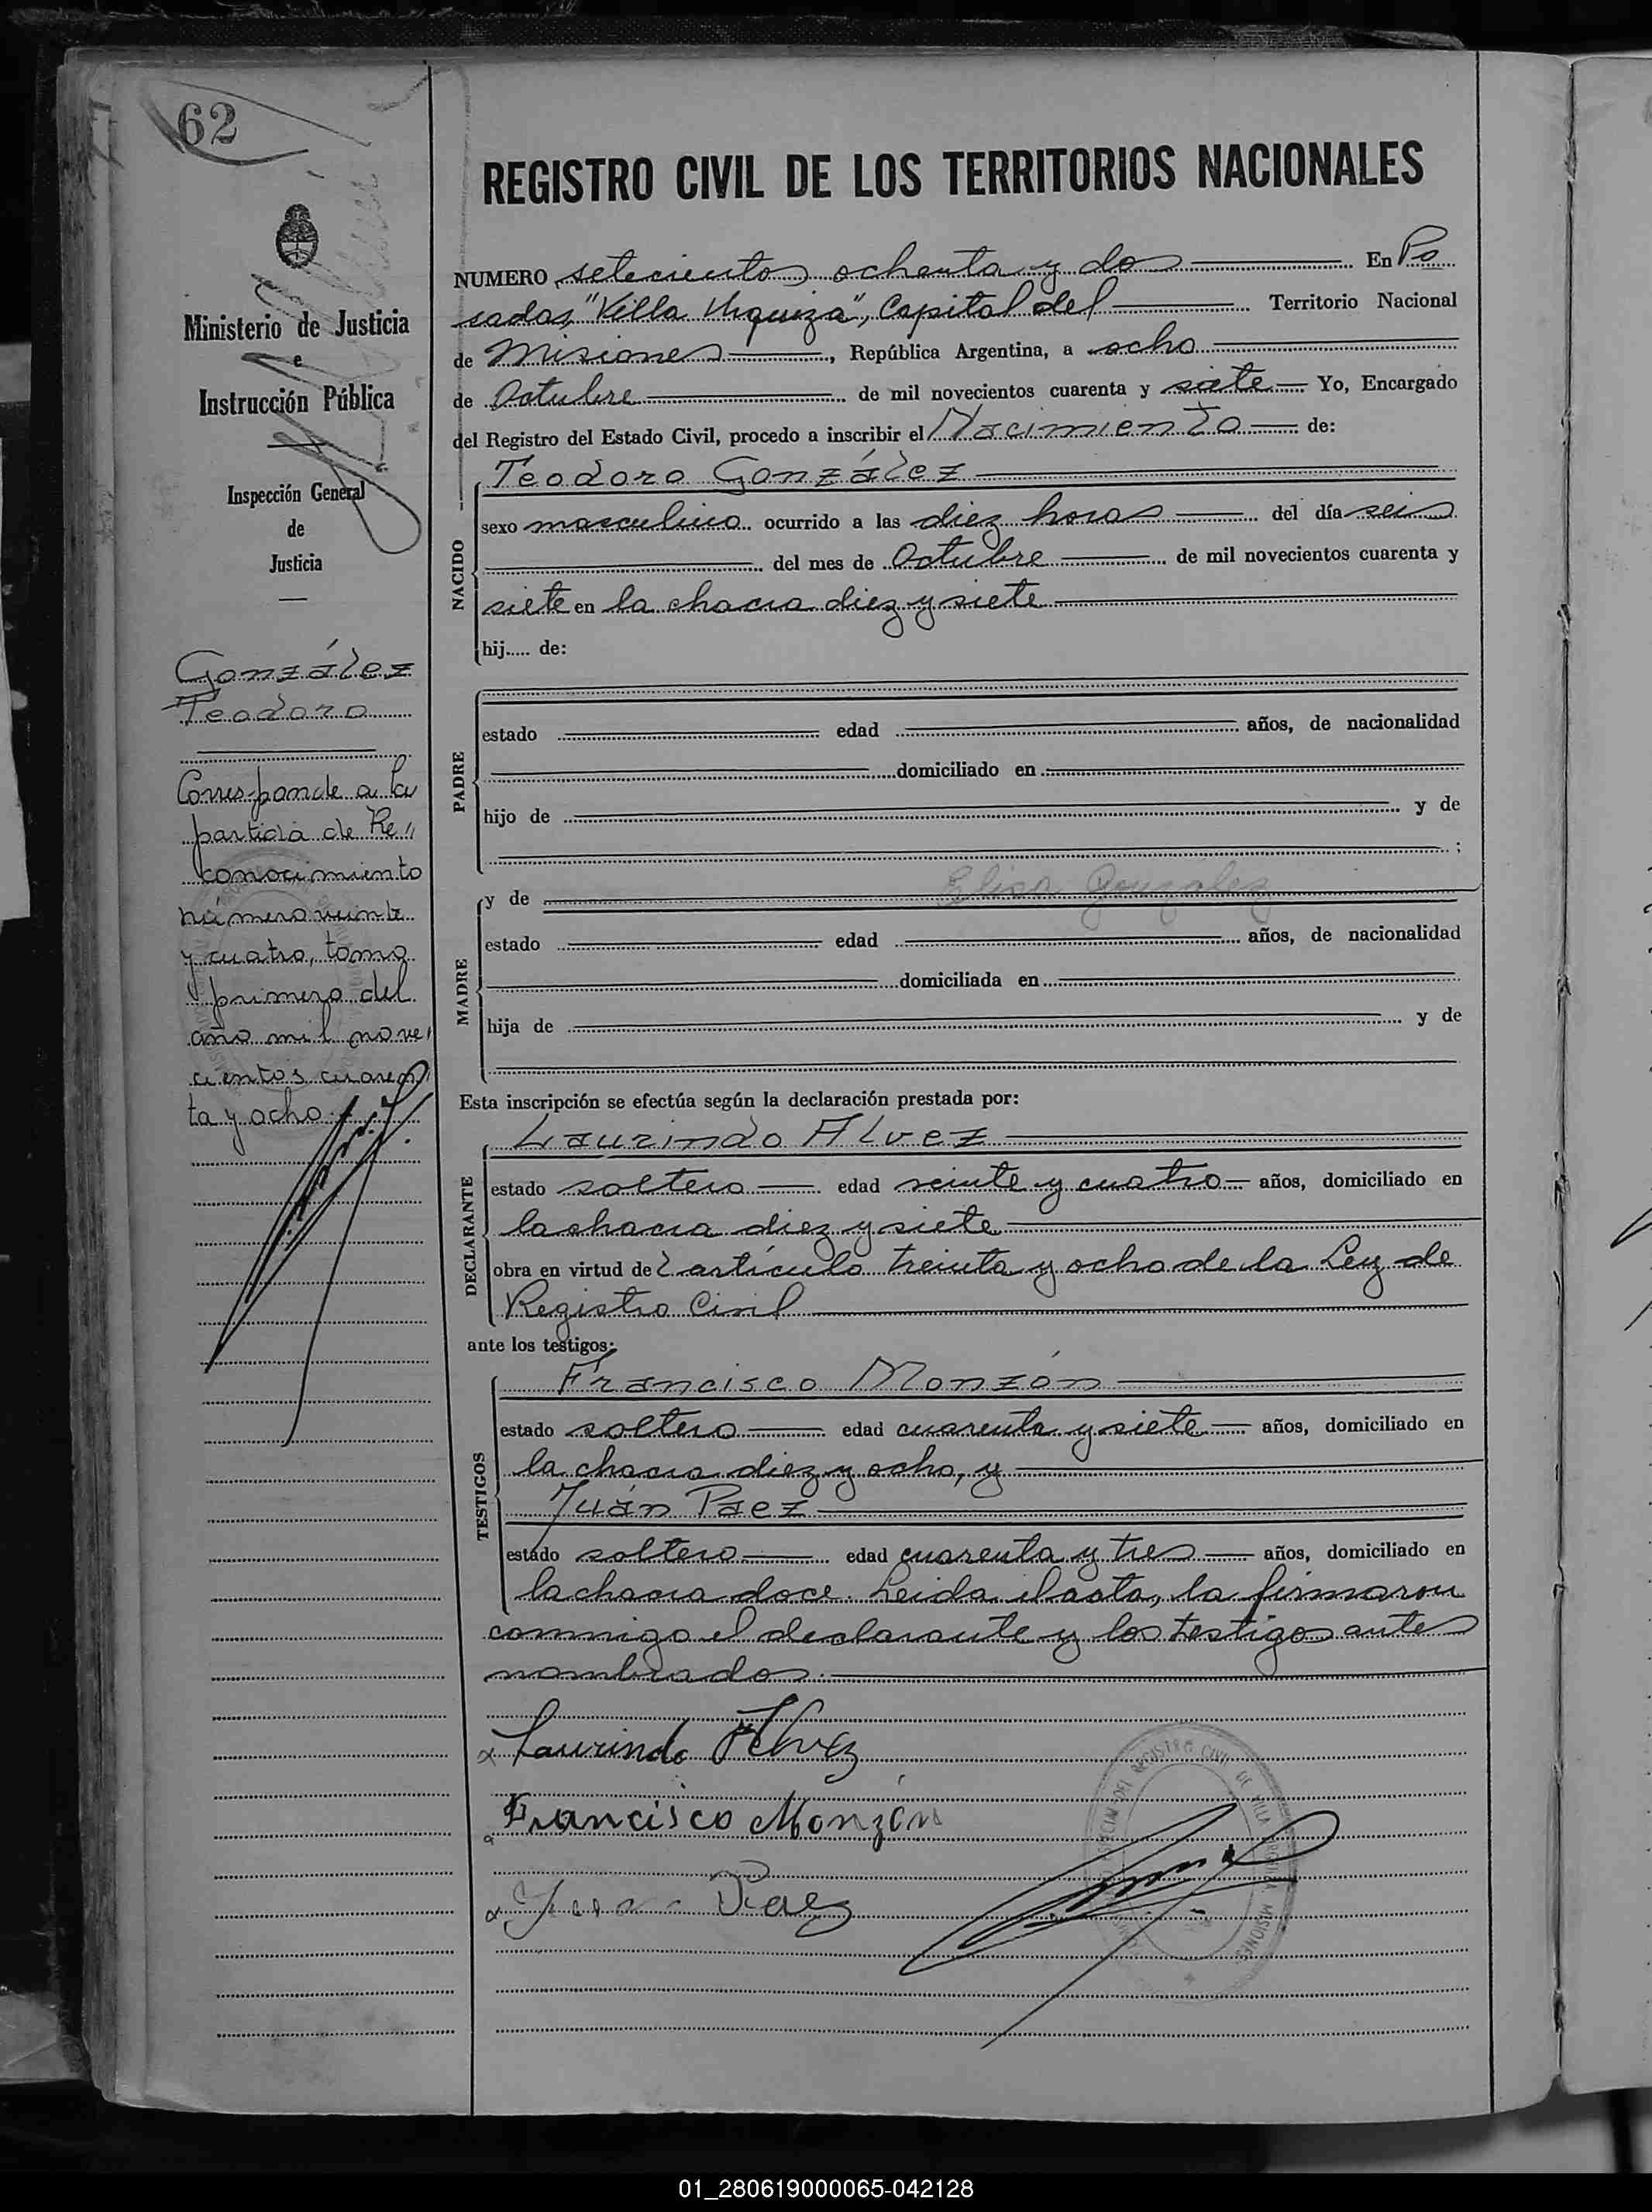 62
Ministerio de Justicia
e
Instrucción Pública
Inspección General
de
Justicia
González
Teodoro
Corresponde a la
partida de Re"
conocimiento
número veinte
y cuatro, tomo
primero del
año mil nove"
cientos cuaren"
ta y ocho.
REGISTRO CIVIL DE LOS TERRITORIOS NACIONALES
NUMERO setecientos ochenta y dos En Po
sadas, "Villa Urquiza", Capital del Territorio Nacional
de Misiones, República Argentina, a ocho
de Octubre de mil novecientos cuarenta y siete Yo, Encargado
del Registro del Estado Civil, procedo a inscribir el Nacimiento de:
NACIDO
Teodoro González
sexo masculino ocurrido a las diez horas del día seis
del mes de Octubre de mil novecientos cuarenta y
siete en la chacra diez y siete
hij..... de:
PADRE
estado edad años, de nacionalidad
domiciliado en
hijo de y de
;
MADRE
y de Elisa Gonzalez
estado edad años, de nacionalidad
domiciliada en
hija de y de
Esta inscripción se efectúa según la declaración prestada por:
DECLARANTE
Laurindo Alvez
estado soltero edad veinte y cuatro años, domiciliado en
la chacra diez y siete
obra en virtud del artículo treinta y ocho de la Ley de
Registro Civil
ante los testigos:
TESTIGOS
Francisco Monzón
estado soltero edad cuarenta y siete años, domiciliado en
la chacra diez y ocho, y
Juán Paez
estado soltero edad cuarenta y tres años, domiciliado en
la chacra doce. Leida el acta, la firmaron
conmigo el declarante y los testigos antes
nombrados.
Laurindo Alvez
Francisco Monzón
Juan Paez
DEL REGISTRO CIVIL DE VILLA URQUIZA MISIONES
01_280619000065-042128